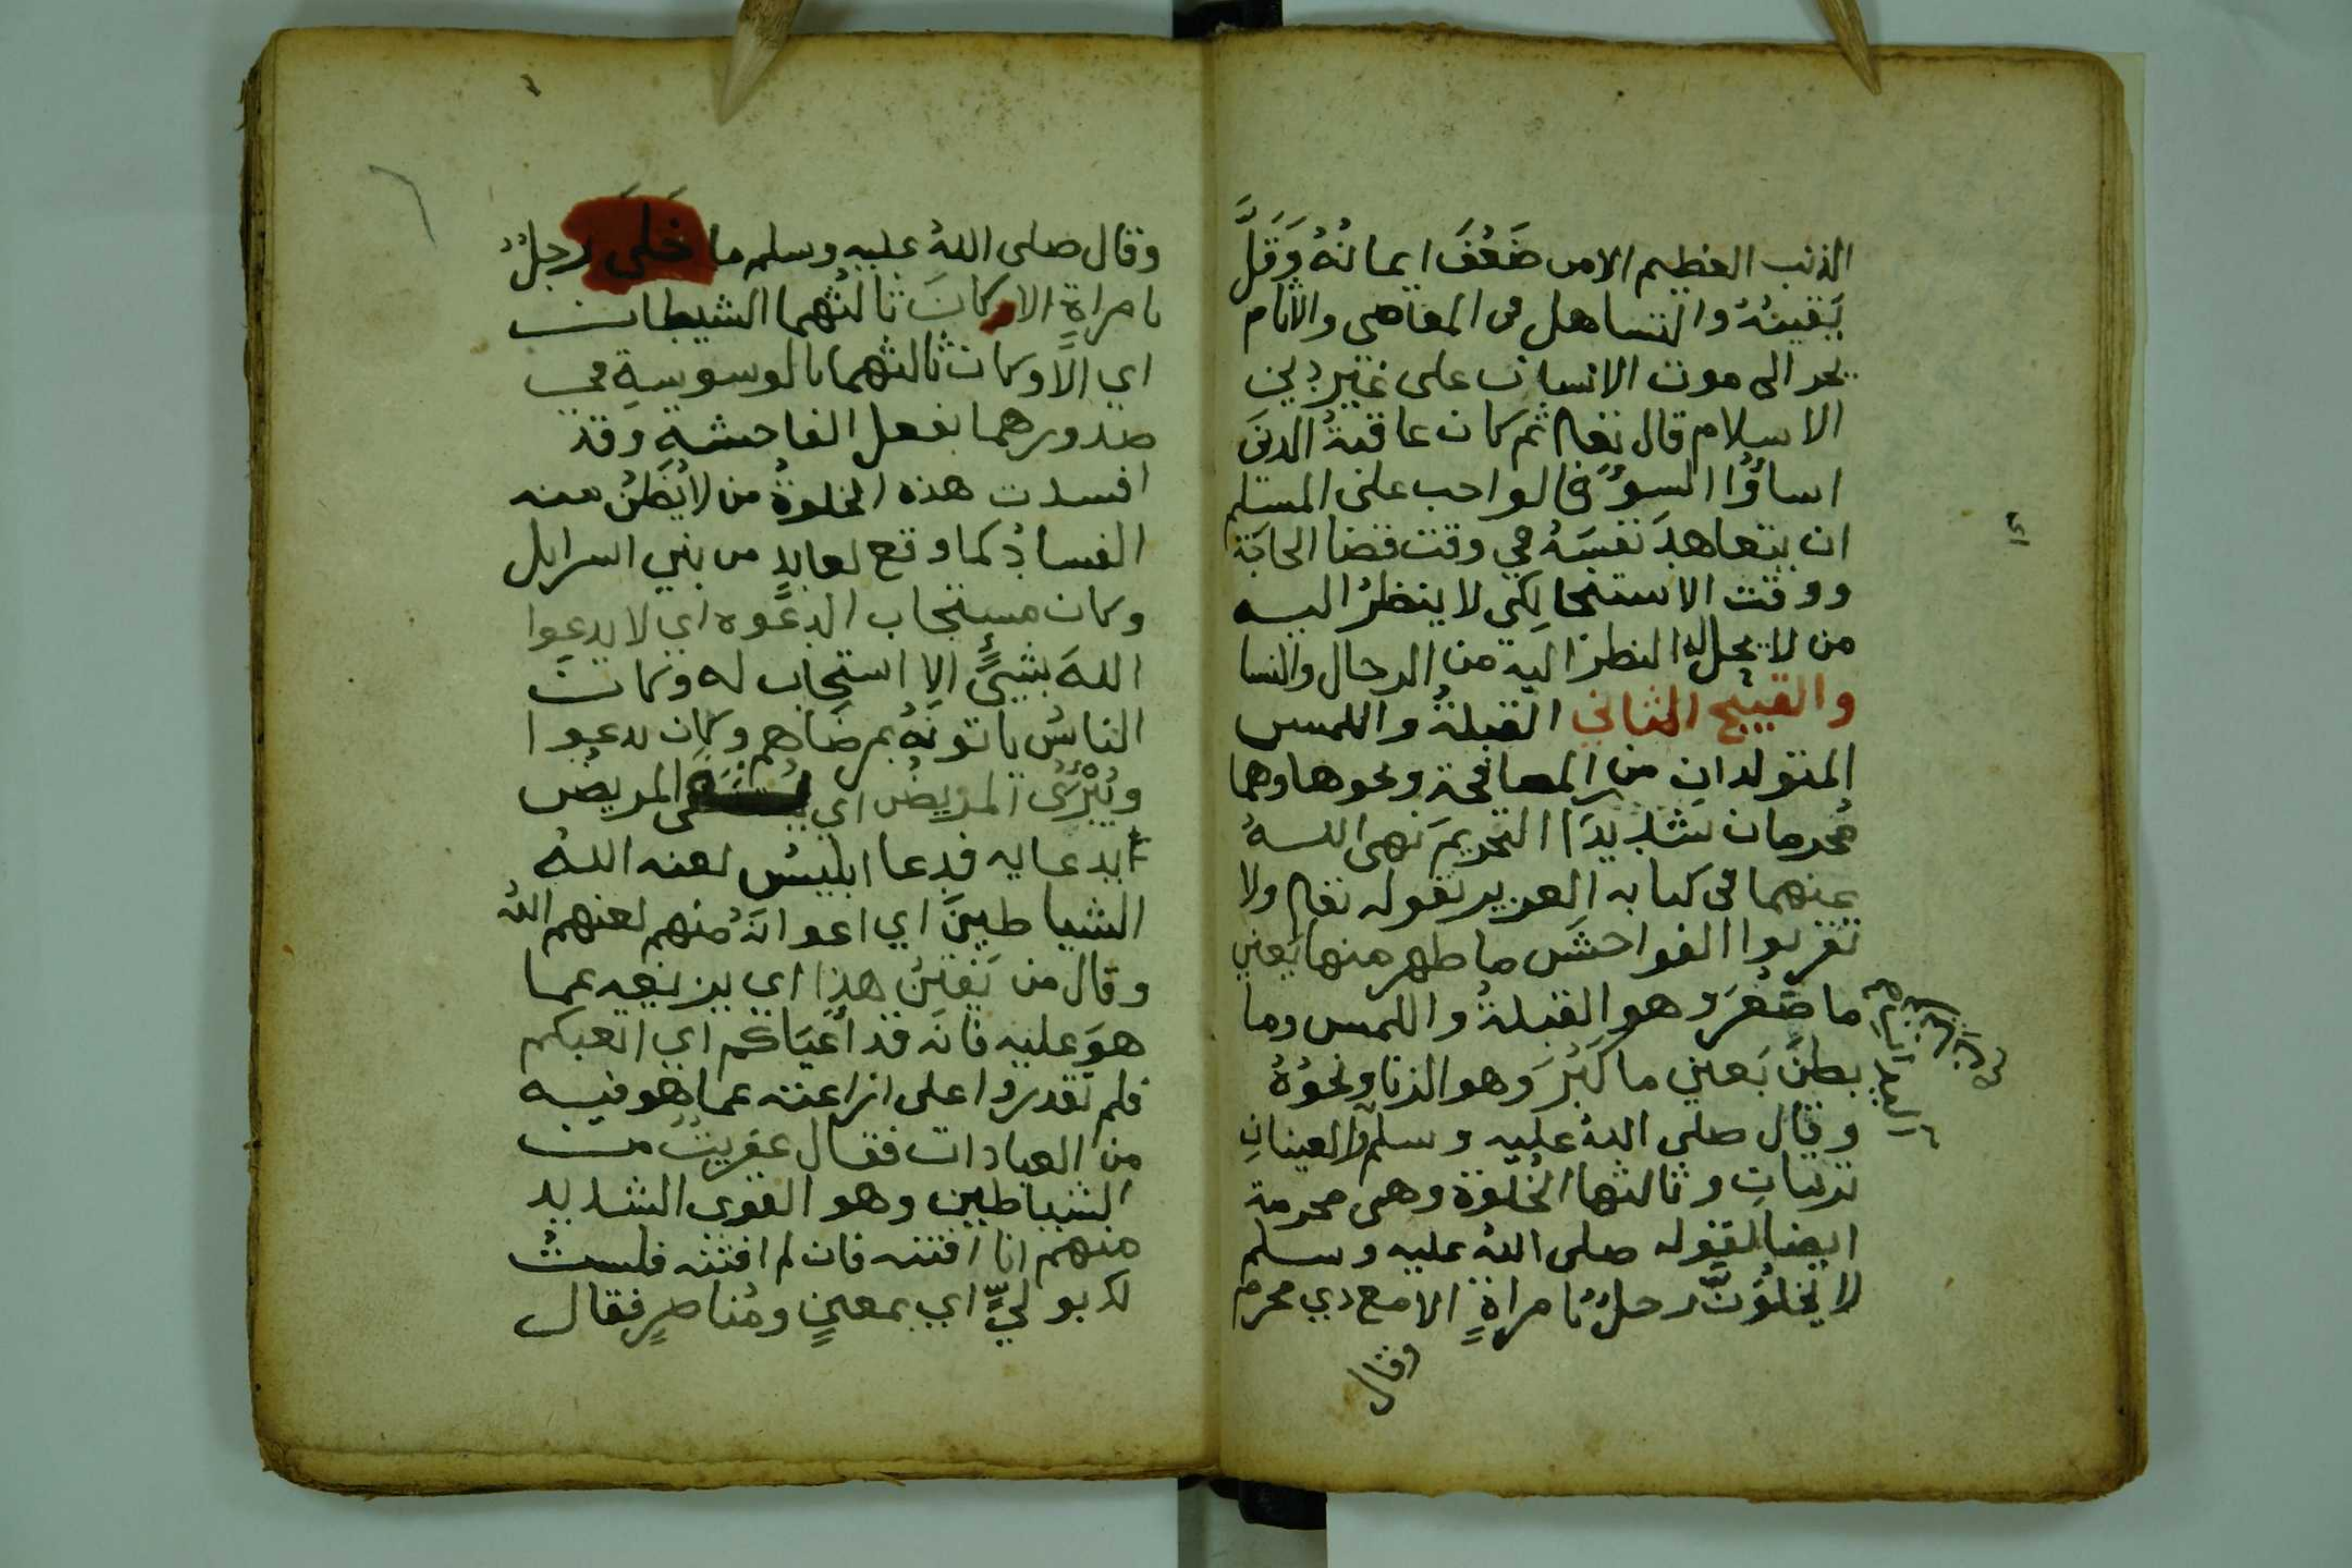 الذنب العظيم الا من ضَعُفَ ايمانُهُ وَقَلَّ
يَقينُهُ والتساهل في المعاصي والاثام
يجر الى موت الانسان على غير دين
الاسلام قال تعالى ثم كان عاقبةُ الذينَ
اساؤُا السوُ فالواجب على المسلم
ان يتعاهدَ نفسَهُ في وقت قضا الحاجَة
ووقت الاستنجا لكي لا ينظرُ اليه
من لا يحل له النظر اليه من الرجال والنسا
والقبيح الثاني القبلةُ واللمس
المتولدانِ من المصافحة ونحوها وهما
محرمان شديدَا التحريمَ نهى اللهُ
عنهما في كتابه العزيز بقوله تعالى ولا
تقربوا الفواحشَ ما ظهر منها يَعني
ما صَغُرَ وهو القبلةُ واللمس وما
بطنَ يَعني ما كَبُرَ وهو الزنا ونحوُهُ
وقال صلى اللهُ عليه وسلم العينانِ
تزنيانِ وثالثها الخُلْوَة وهي محرمة
ايضا لقوله صلى اللهُ عليه وسلم
لا يخلُوَنَّ رجلٌ بامراةٍ الا مع ذي محرم
وقال
وقال صلى اللهُ عليه وسلم ما خَلَىَ رجلٌ
بامراةٍ الا وكانَ ثالثُهما الشيطان
اي الَّا وكان ثالثهما بالوسوسةِ في
صدورهما بفعل الفاحشه وقد
افسدت هذه الخلوةُ من لا يُظَنُ منه
الفسادُ كما وقع لعابدٍ من بني اسرايل
وكان مستجاب الدعَوه اي لا يدعوا
اللهَ بشيءٍ الا استجاب له وكانَ
الناسُ ياتونَهُ بمرضَاهم وكان يدعوا
ويُبْرِئُ المريضُ اي المريضُ
بدعايه فدعا ابليسُ لعنه اللهُ
الشياطينَ اي اعوانَهُ منهم لعنهم اللهُ
وقال من يَفتِنُ هذا اي يزيغه عما
هوَ عليه فانَه قد أعْيَاكم اي اتعبكم
فلم تقدروا على ازاغته عما هو فيه
من العبادات فقال عفريتٌ من
الشياطين وهو القوي الشديد
منهم انا افتنه فان لم افتنه فلستُ
لك بوليٍّ اي بمعينٍ ومُناصرٍ فقال